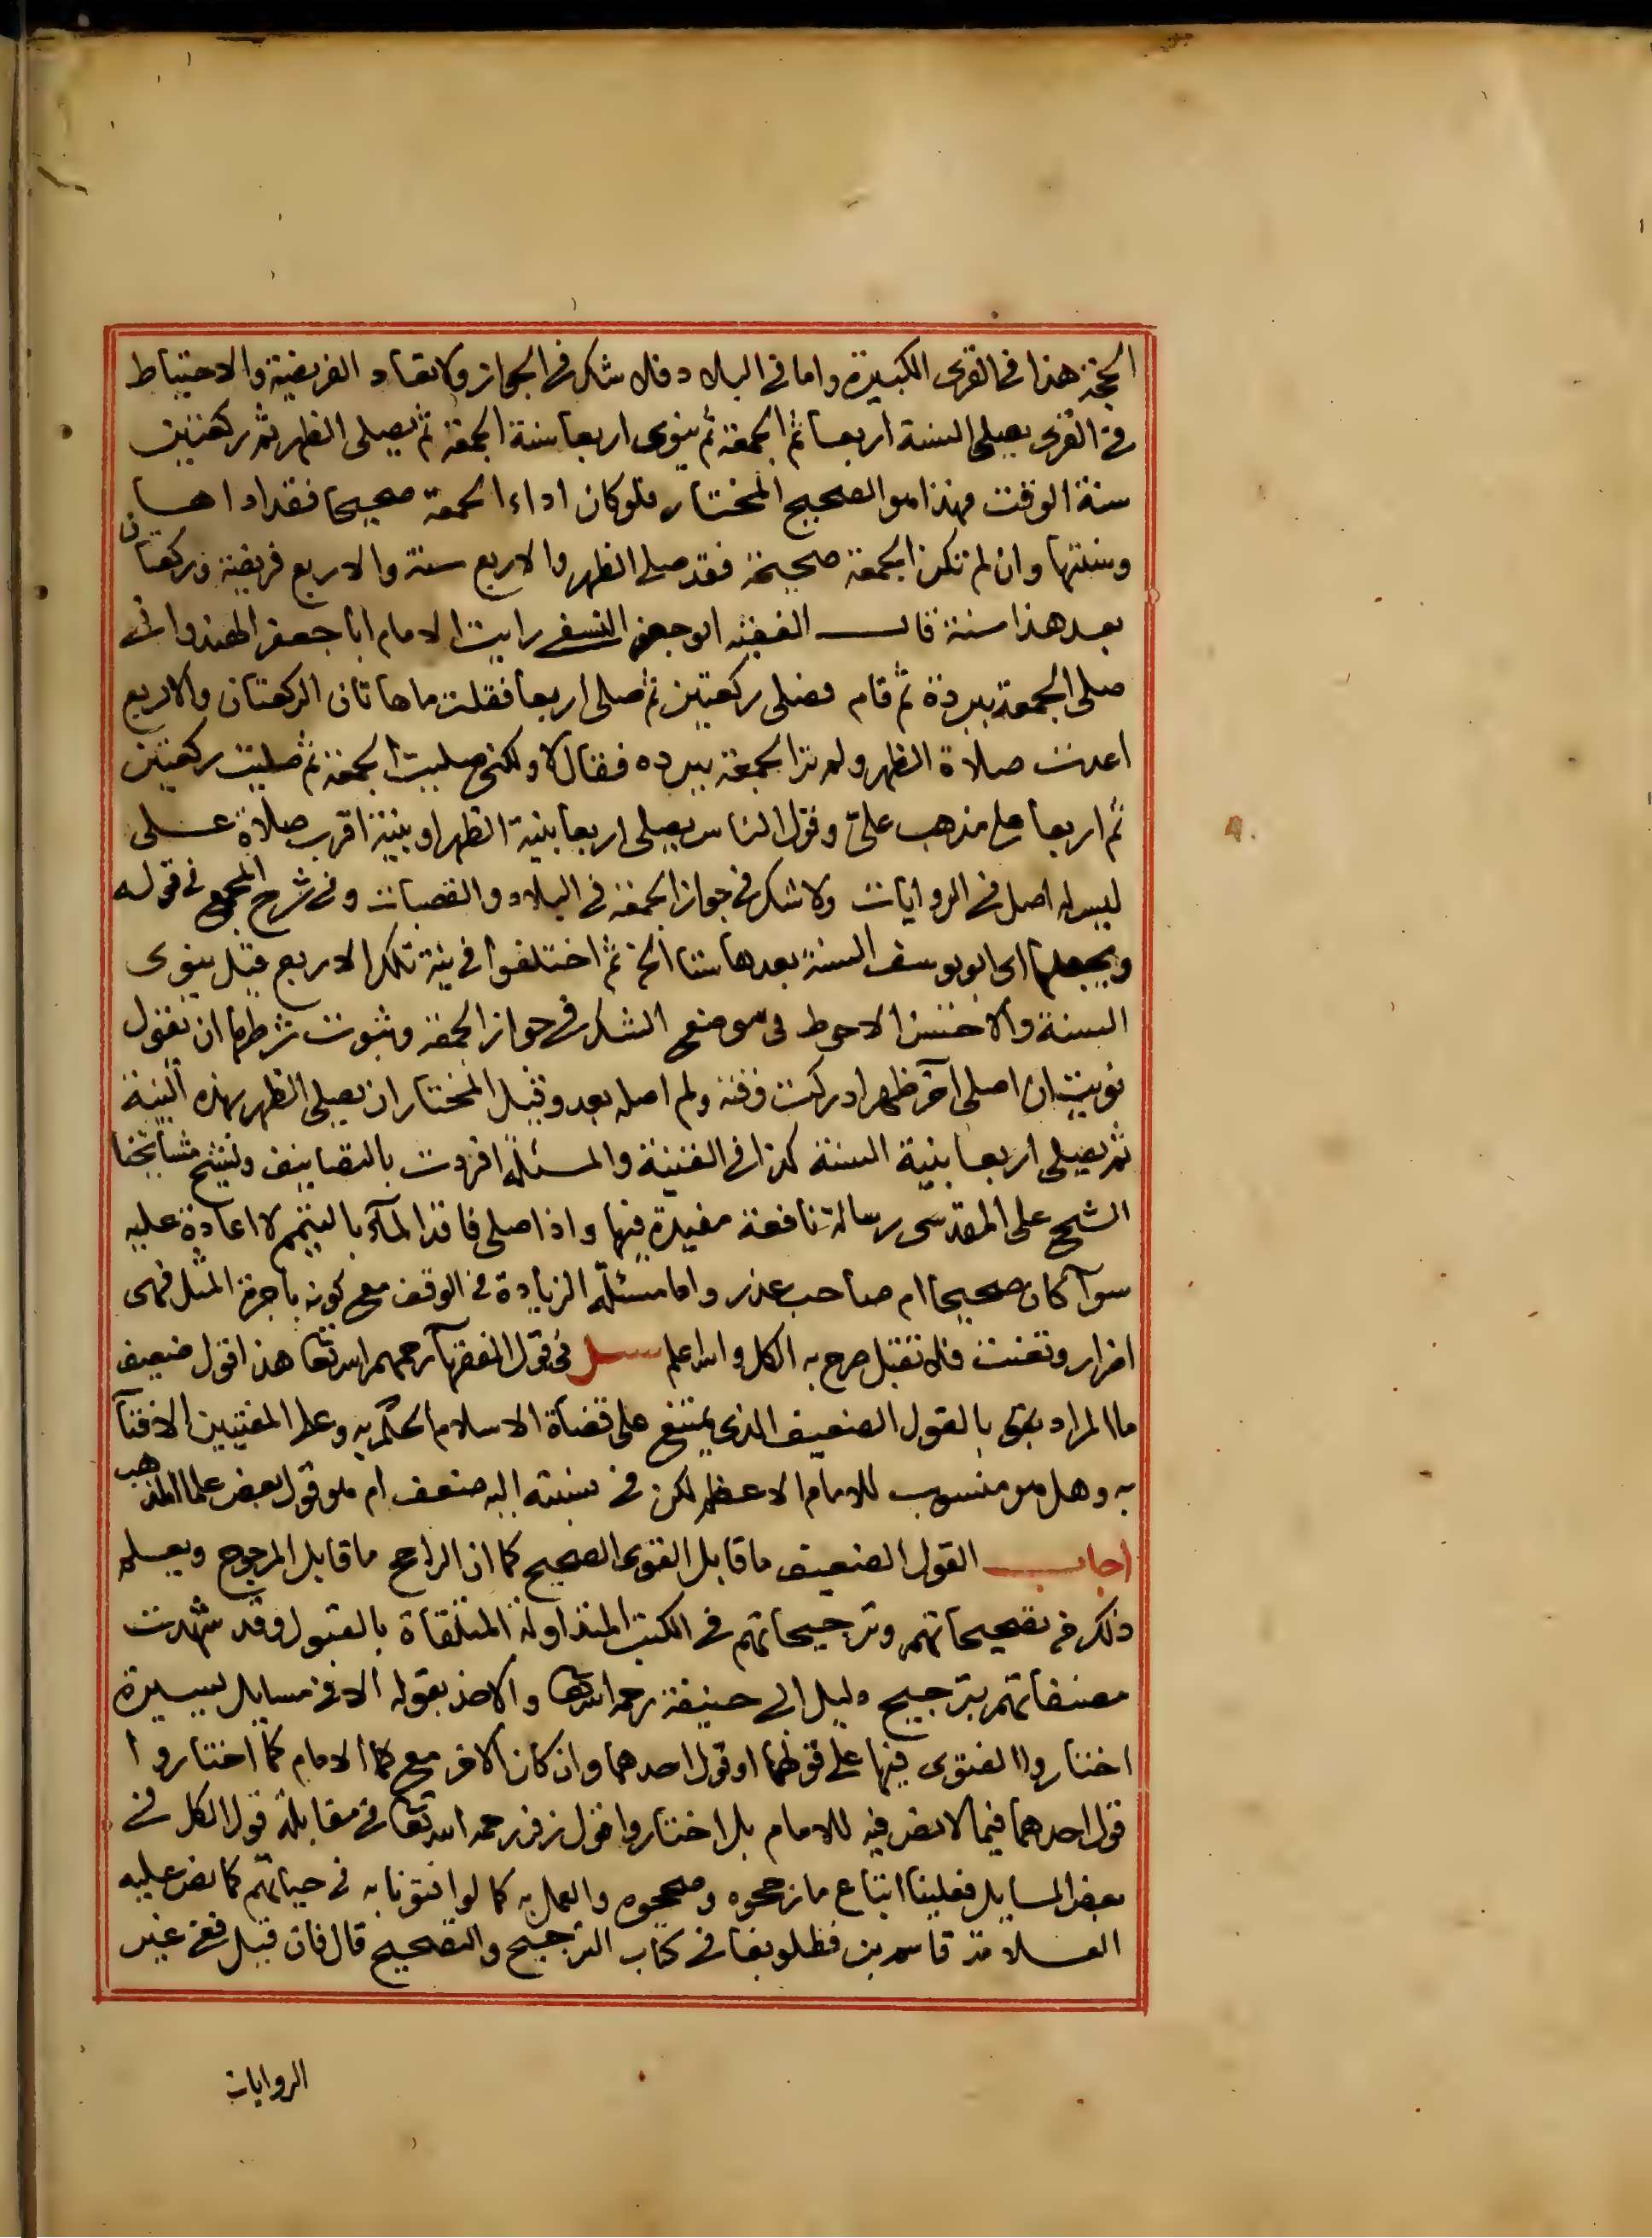 الحجة هذا في القرى الكبيرة واما في البلاد فلا شك في الجواز ولا تعاد الفريضة والاحتياط
في القرى يصلى السنة اربعا ثم الجمعة ثم ينوى اربعا سنة الجمعة ثم يصلى الظهر ثم ركعتين
سنة الوقت فهذا هو الصحيح المختار فلو كان اداء الجمعة صحيحا فقد اداها
وسنتها وان لم تكن الجمعة صحيحة فقد صلى الظهر والاربع سنة والاربع فريضة وركعتان
بعد هذا سنة قال الفقيه ابو جعفر النسفي رايت الامام ابا جعفر الهندواني
صلى الجمعة ببردة ثم قام فصلى ركعتين ثم صلى اربعا فقلت ما هاتان الركعتان والاربع
اعدت صلاة الظهر ولم تر الجمعة ببرده فقال لا ولكني صليت الجمعة ثم صليت ركعتين
ثم اربعا على مذهب على وقول الناس يصلى اربعا بنية الظهر او بنية اقرب صلاة على
ليس له اصل في الروايات ولا شك في جواز الجمعة في البلاد والقصبات وفي شرح المجمع في قوله
ويجعلها اى ابو يوسف السنة بعدها ستا الخ ثم اختلفوا في نية تلك الاربع قيل ينوى
السنة والاحسن الاحوط في موضع الشك في جواز الجمعة وثبوت شرطها ان يقول
نويت ان اصلى آخر ظهر ادركت وقته ولم اصله بعد وقيل المختار ان يصلى الظهر بهذه النية
ثم يصلى اربعا بنية السنة كذا في القنية والمسئلة افردت بالتصانيف ولشيخ مشايخنا
الشيخ على المقدسى رسالة نافعة مفيدة فيها واذا صلى فاقد المآء بالتيمم لا اعادة عليه
سوآ كان صحيحا ام صاحب عذر واما مسئلة الزيادة في الوقف مع كونه باجرة المثل فهى
اضرار وتعنت فلا تقبل صرح به الكل والله اعلم سئل في قول الفقهآ رحمهم الله تعا هذا قول ضعيف
ما المراد بقى بالقول الضعيف الذى يمتنع على قضاة الاسلام الحكم به وعلى المفتيين الافتآ
به وهل هو منسوب للامام الاعظم لكن في نسبته اليه ضعف ام هو قول بعض علما المذهب
اجاب القول الضعيف ما قابل القوى الصحيح كما ان الراجح ما قابل المرجوح ويعلم
ذلك من تصحيحاتهم وترجيحاتهم في الكتب المتداولة المتلقاة بالقبول وقد شهدت
مصنفاتهم بترجيح دليل ابى حنيفة رحمه الله تعا والاخذ بقوله الا في مسايل يسيرة
اختاروا الفتوى فيها على قولهما او قول احدهما وان كان الاخر مع الامام كما اختاروا
قول احدهما فيما لا نص فيه للامام بل اختاروا قول زفر رحمه الله تعا في مقابلة قول الكل في
بعض المسايل فعلينا اتباع ما رجحوه وصححوه والعمل به كما لو افتونا به في حياتهم كما نص عليه
العلامة قاسم بن قطلوبغا في كتاب الترجيح والتصحيح قال فان قيل ففى غير
الروايات